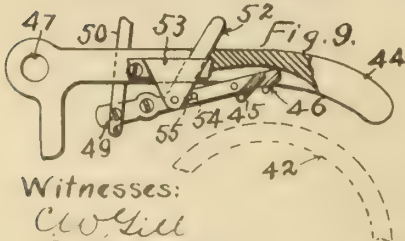 47
50
53
52
Fig. 9.
44
49
55
54
45
46
42
Witnesses:
CW Gill